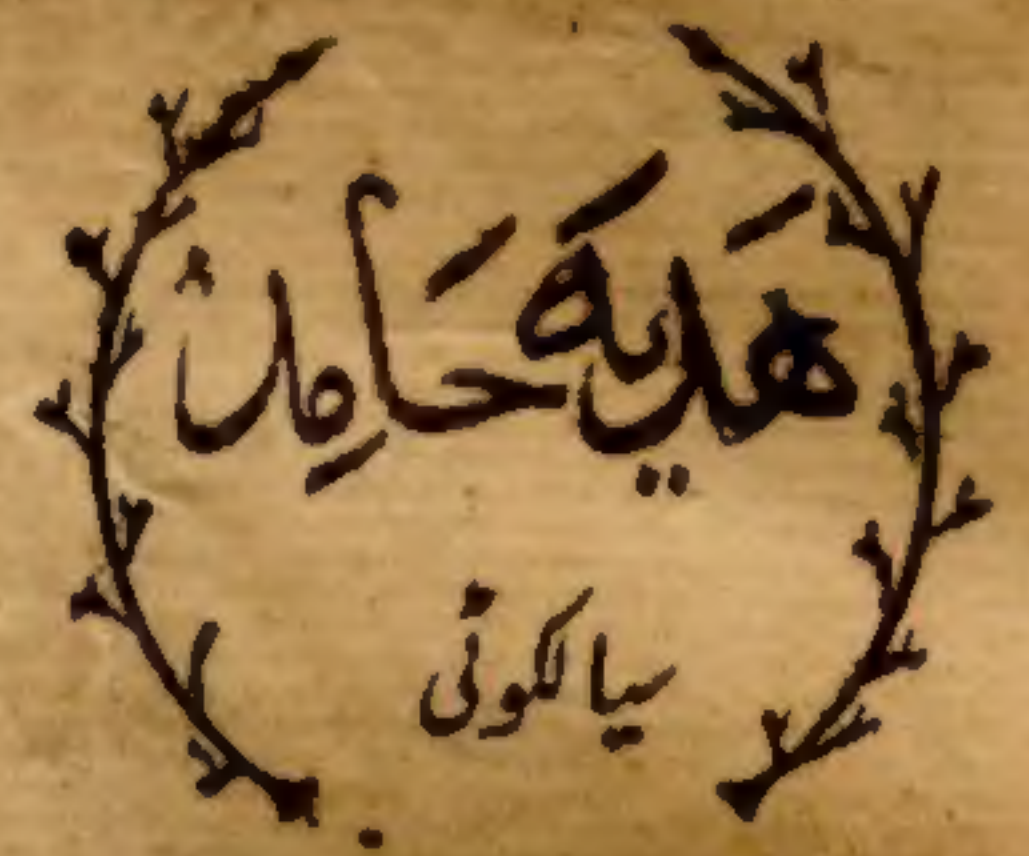 هَدیہَ حَامِدْ
سیالکوٹی